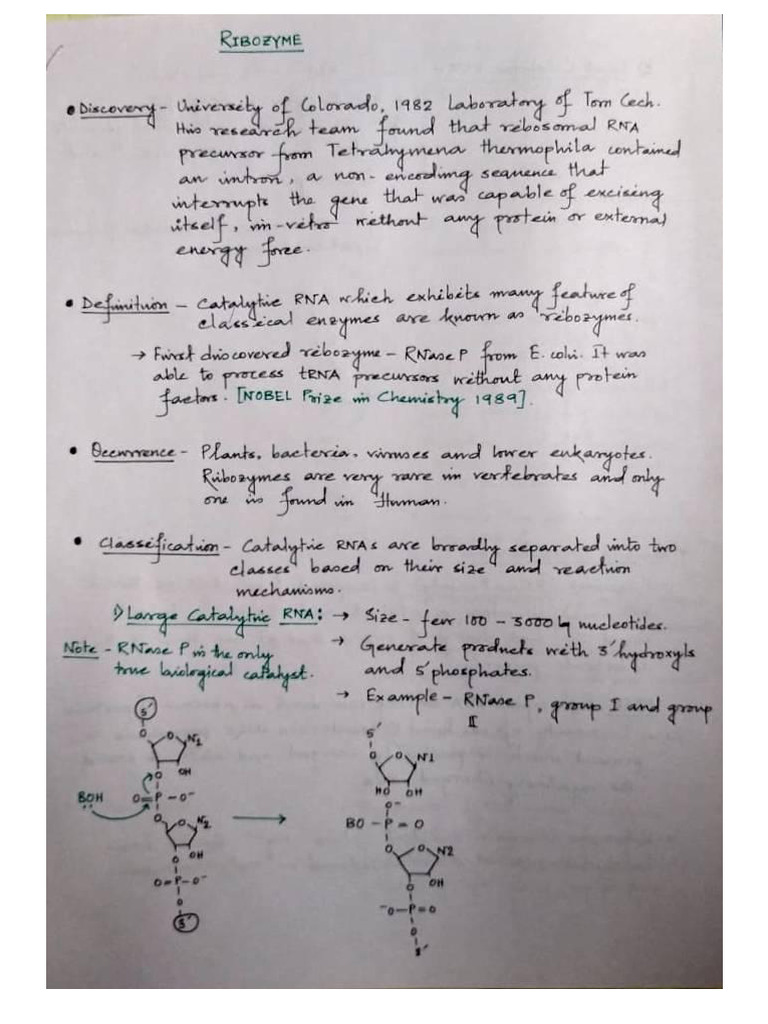 RIBOZYME
• Discovery - University of Colorado, 1982 Laboratory of Tom Cech.
His research team found that ribosomal RNA
precursor from Tetrahymena thermophila contained
an intron, a non-encoding sequence that
interrupts the gene that was capable of excising
itself, in-vitro without any protein or external
energy force.
• Definition - Catalytic RNA which exhibits many feature of
classical enzymes are known as ribozymes.
→ First discovered ribozyme - RNase P from E. coli. It was
able to process tRNA precursors without any protein
factors. [NOBEL Prize in Chemistry 1989].
• Occurrence - Plants, bacteria, viruses and lower eukaryotes.
Ribozymes are very rare in vertebrates and only
one is found in Human.
• Classification - Catalytic RNAs are broadly separated into two
classes based on their size and reaction
mechanisms.
1) Large Catalytic RNA: → Size - few 100 - 3000 nucleotides.
Note - RNase P is the only
true biological catalyst.
→ Generate products with 3' hydroxyls
and 5' phosphates.
→ Example - RNase P, group I and group
II
5'
O
O N1
O OH
BOH O=P-O-
O O N2
O OH
O=P-O-
O
3'
5'
O
O N1
HO OH
O-
BO-P=O
O O N2
O OH
-O-P=O
O
3'